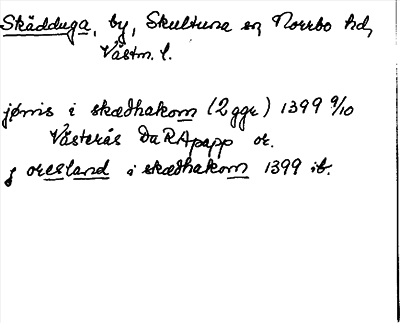 Skädduga, by, Skultuna sn, Norrbo hd,
Västm. l.
jønis i skædhakom (2 ggr) 1399 9/10
Västerås DaRApapp or.
j oresland i skædhakom 1399 ib.